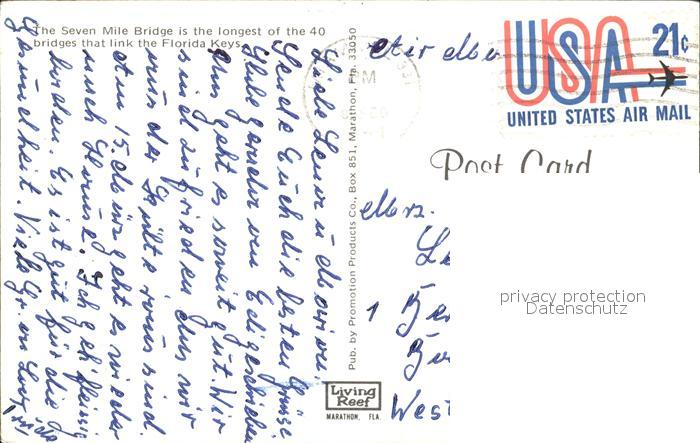 The Seven Mile Bridge is the longest of the 40
bridges that link the Florida Keys.
Liebe Leni u Marian
Sende Euch die besten Grüsse
Uns geht es soweit gut. Wir
sind zufrieden das wir
aus der Kälte raus sind.
Am 15. März geht es wieder
nach Hause. Ich geh fleissig
baden. Es ist gut für die
Gesundheit. Viele Gr. an
Pub. by Promotion Products Co., Box 851, Marathon, Fla. 33050
Living
Reef
MARATHON, FLA.
PM
Air
USA 21c
UNITED STATES AIR MAIL
Post Card
Mrs.
1
West
privacy protection
Datenschutz